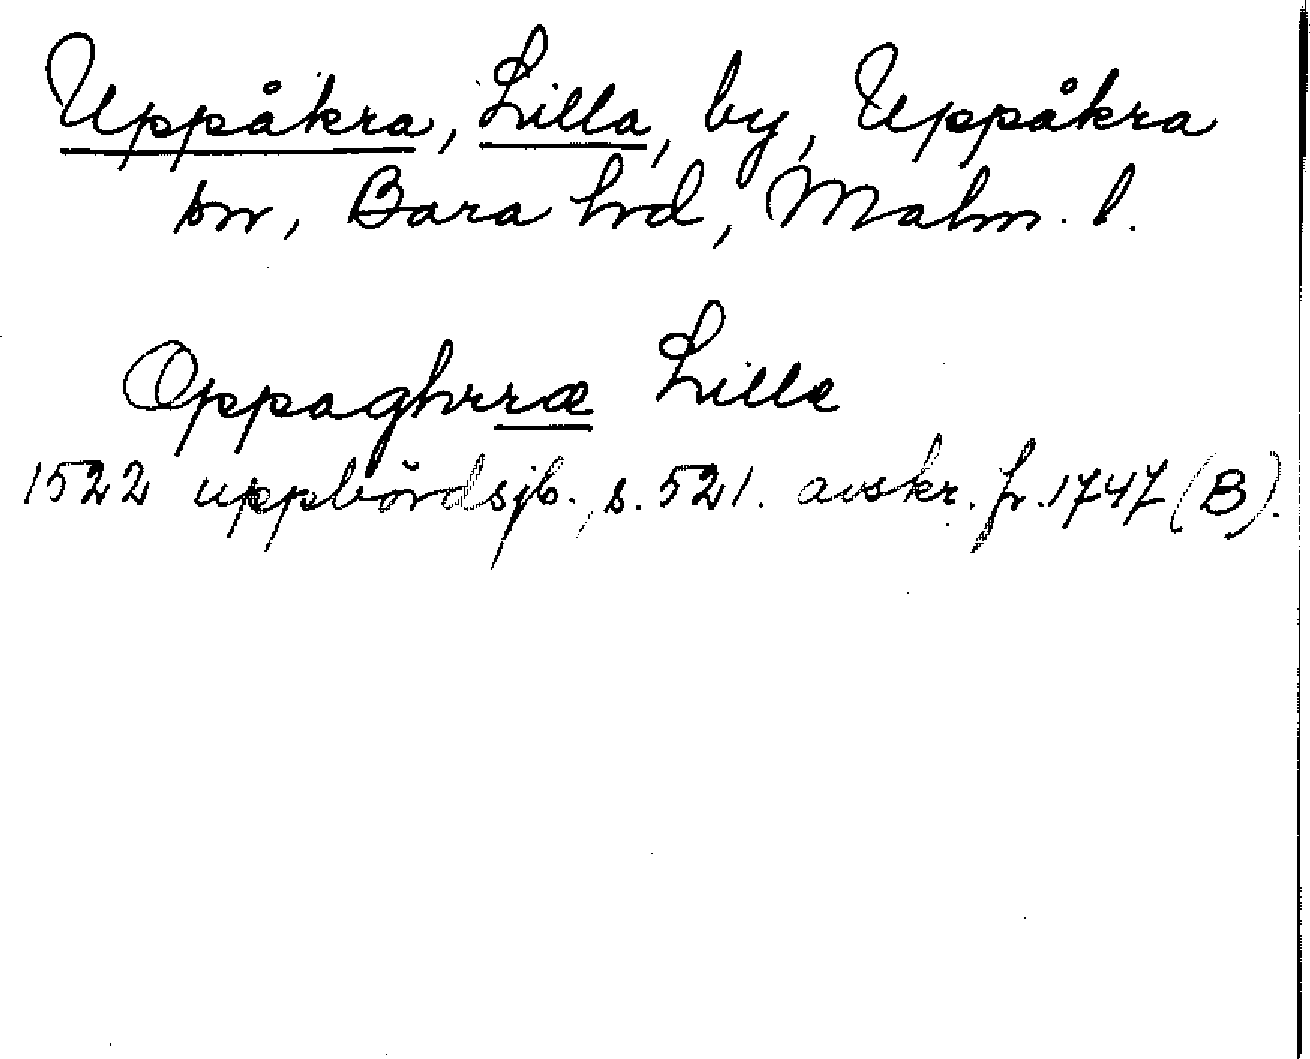 Uppåkra, Lilla, by, Uppåkra
sn, Bara hd, Malm. l.
Oppaghrræ Lille
1522 uppbördsjb., s. 521. avskr. fr. 1747 (B).